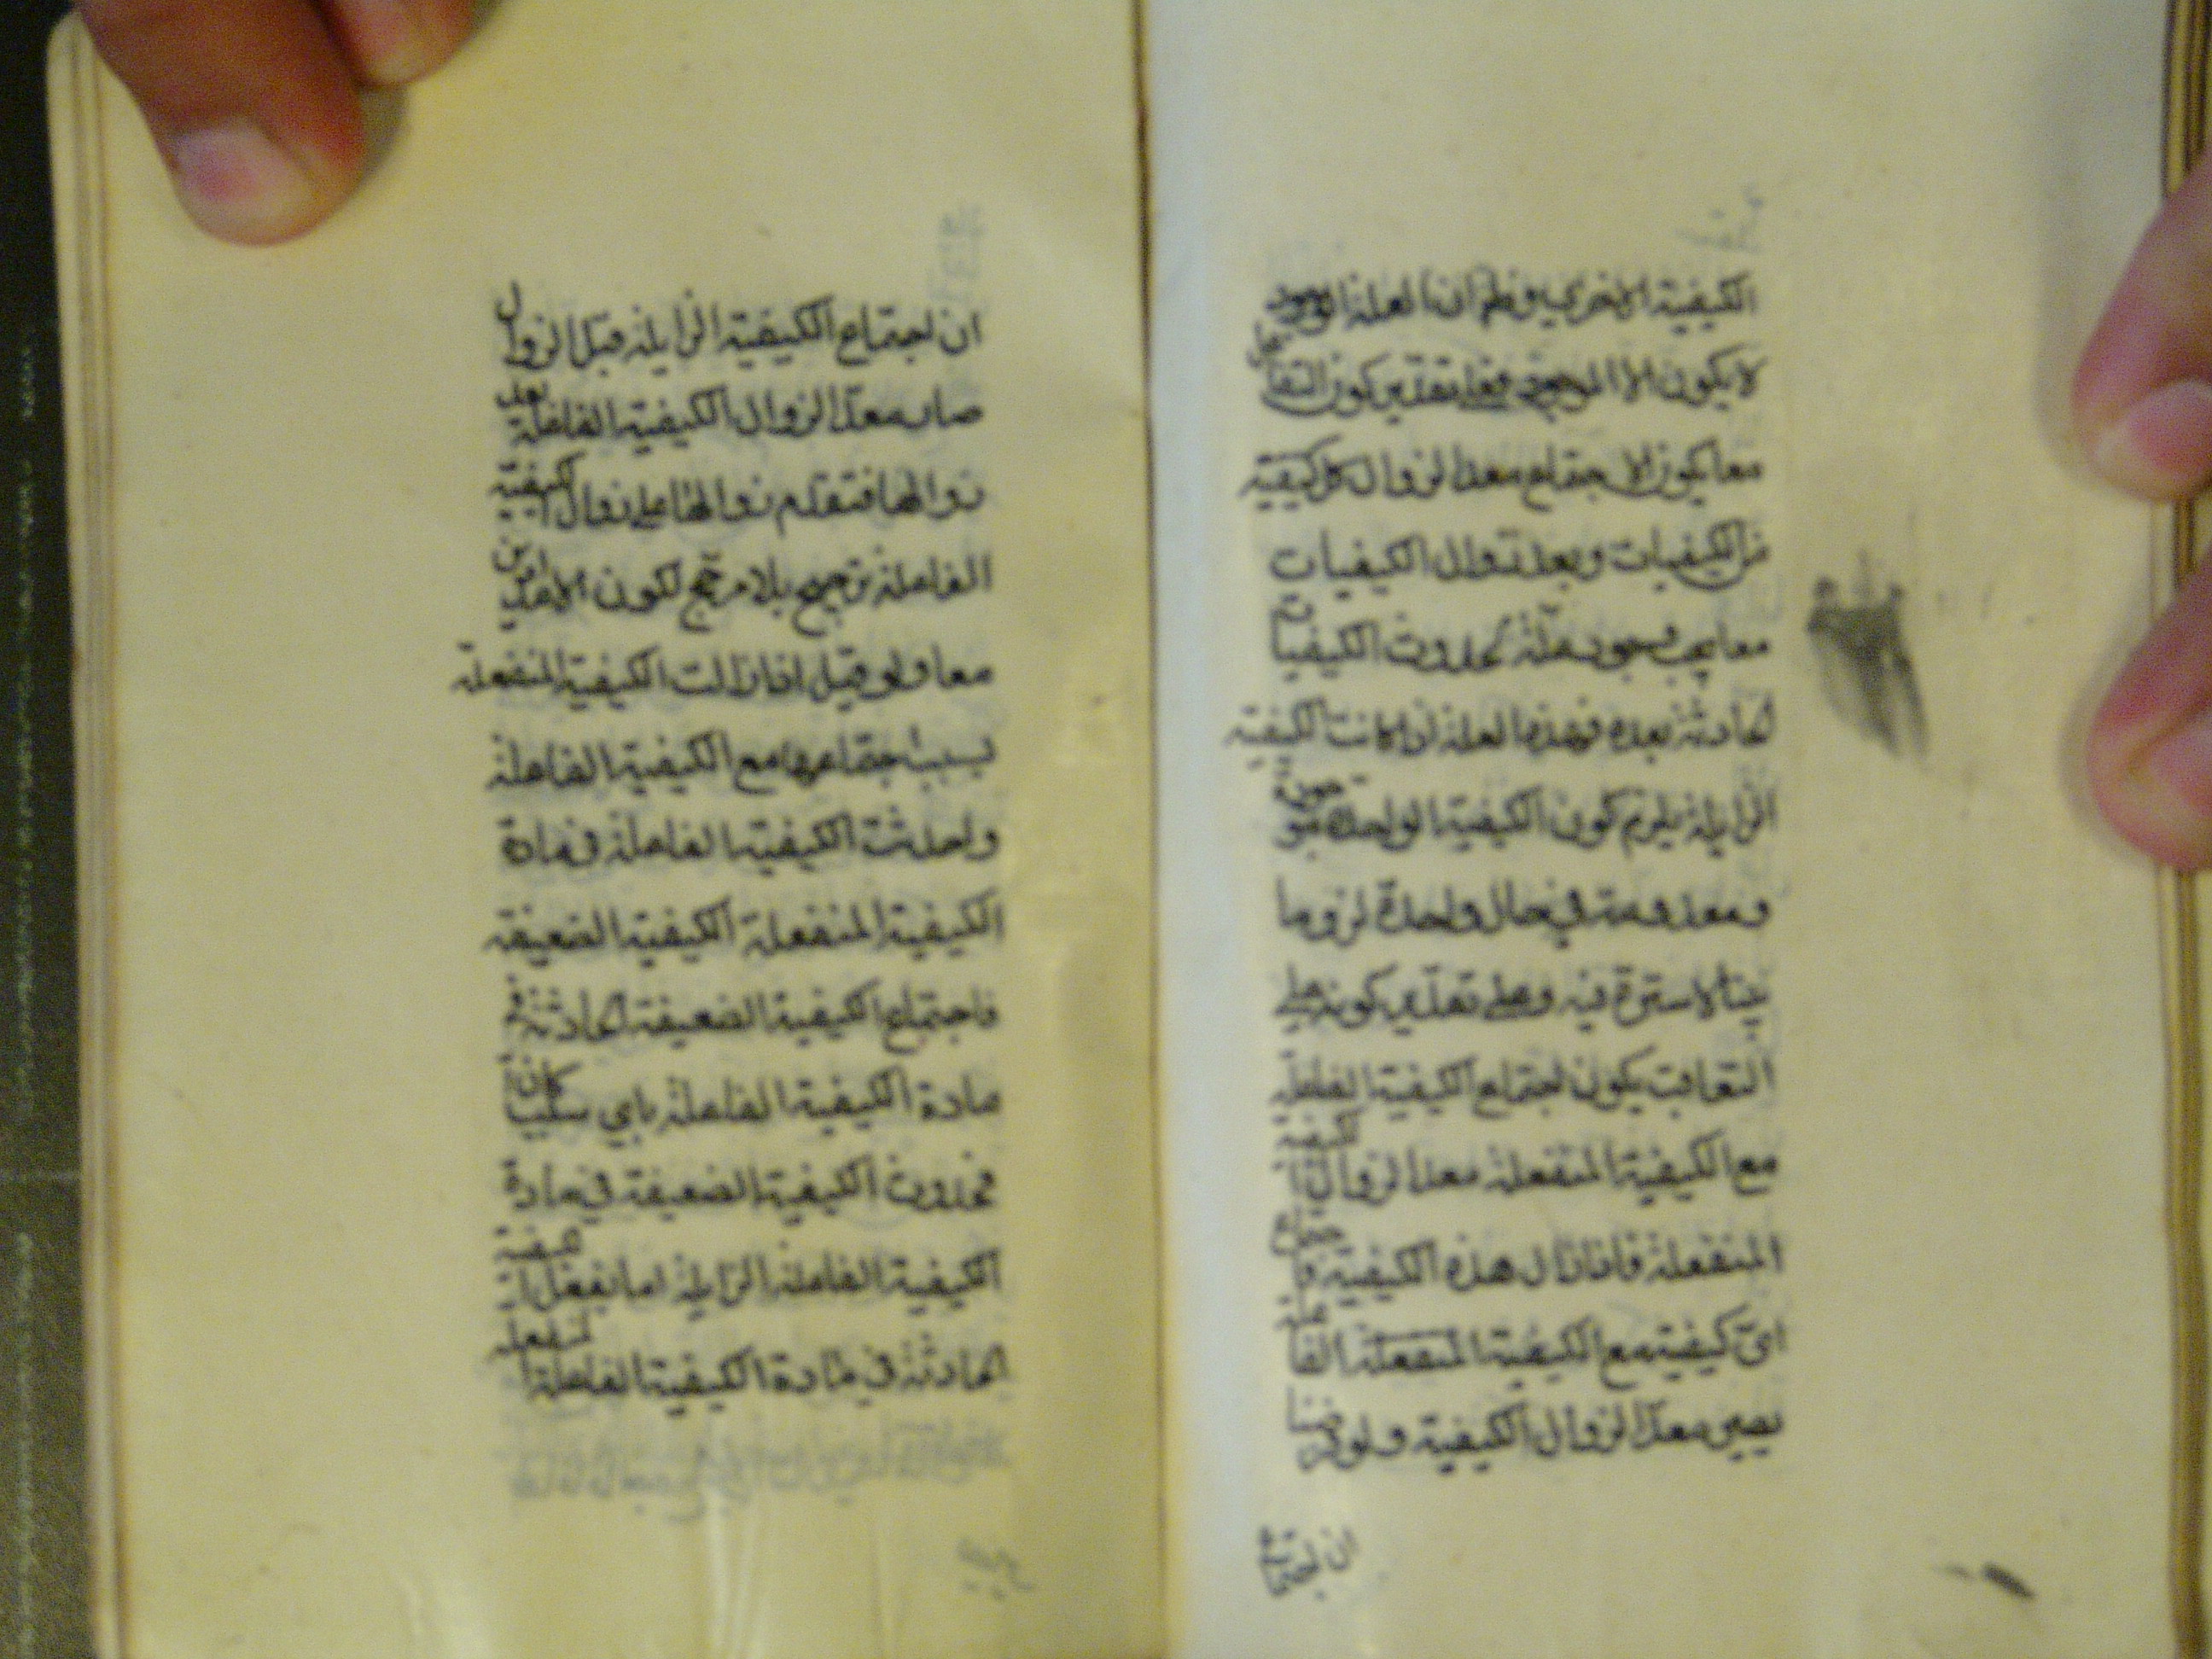 الكيفية الاخرى وظهر ان العلة الوجود
لا يكون الا الموجود فعلى تقدير كون التفاعل
معا يكون الاجتماع معدا لزوال كل كيفية
من الكيفيات وبعد زوال الكيفيات
معا يجب وجود علة لحدوث الكيفيات
الحادثة بعده فهذه العلة لو كانت الكيفية
الزايلة يلزم كون الكيفية الواحدة موجودة
ومعدومة في حال واحدة لزوما
بينا لا سترة فيه وعلى تقدير كونه على
التعاقب يكون اجتماع الكيفية الفاعلة
مع الكيفية المنفعلة معدا لزوال الكيفية
المنفعلة فاذا زال هذه الكيفية فاجتماع
اى كيفية مع الكيفية المنفعلة الفاعلة
يصير معدا لزوال الكيفية ولو فرضنا
ان اجتماع
ان اجتماع الكيفية الزايلة قبل الزوال
صار معدا لزوال الكيفية الفاعلة بعد
زوالها فتقدم زوالها على زوال الكيفية
الفاعلة ترجيح بلا مرجح لكون الامرين
معا ولو قيل اذا زالت الكيفية المنفعلة
بسبب اجتماعها مع الكيفية الفاعلة
واحدثت الكيفية الفاعلة في مادة
الكيفية المنفعلة الكيفية الضعيفة
فاجتماع الكيفية الضعيفة الحادثة في
مادة الكيفية الفاعلة باي سبب كان
فحدوث الكيفية الضعيفة في مادة
الكيفية الفاعلة الزايلة اما بفعل الكيفية
الحادثة في مادة الكيفية الفاعلة المنفعلة